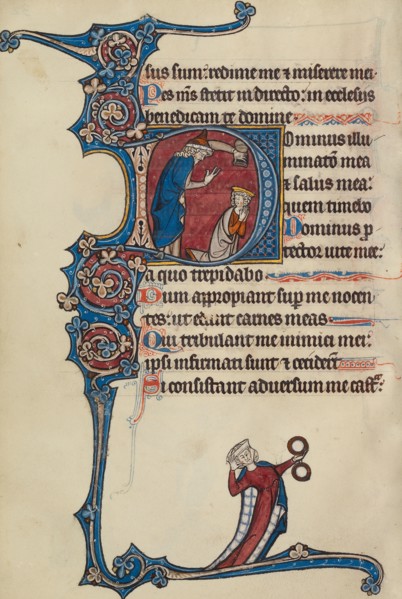 sus sum: redime me ⁊ miserere mei
Pes mͥs stetit in directo: in ecclesiis
benedicam te domine
Dominus illu
minatio mea
⁊ salus mea:
quem timebo
Dominus p
tector uite mee:
a quo trepidabo
Dum appropiant sup̱ me nocen
tes: ut edant carnes meas
Qui tribulant me inimici mei:
ipsi infirmati sunt ⁊ ceciderṫ
Si consistant aduersum me castͣ: